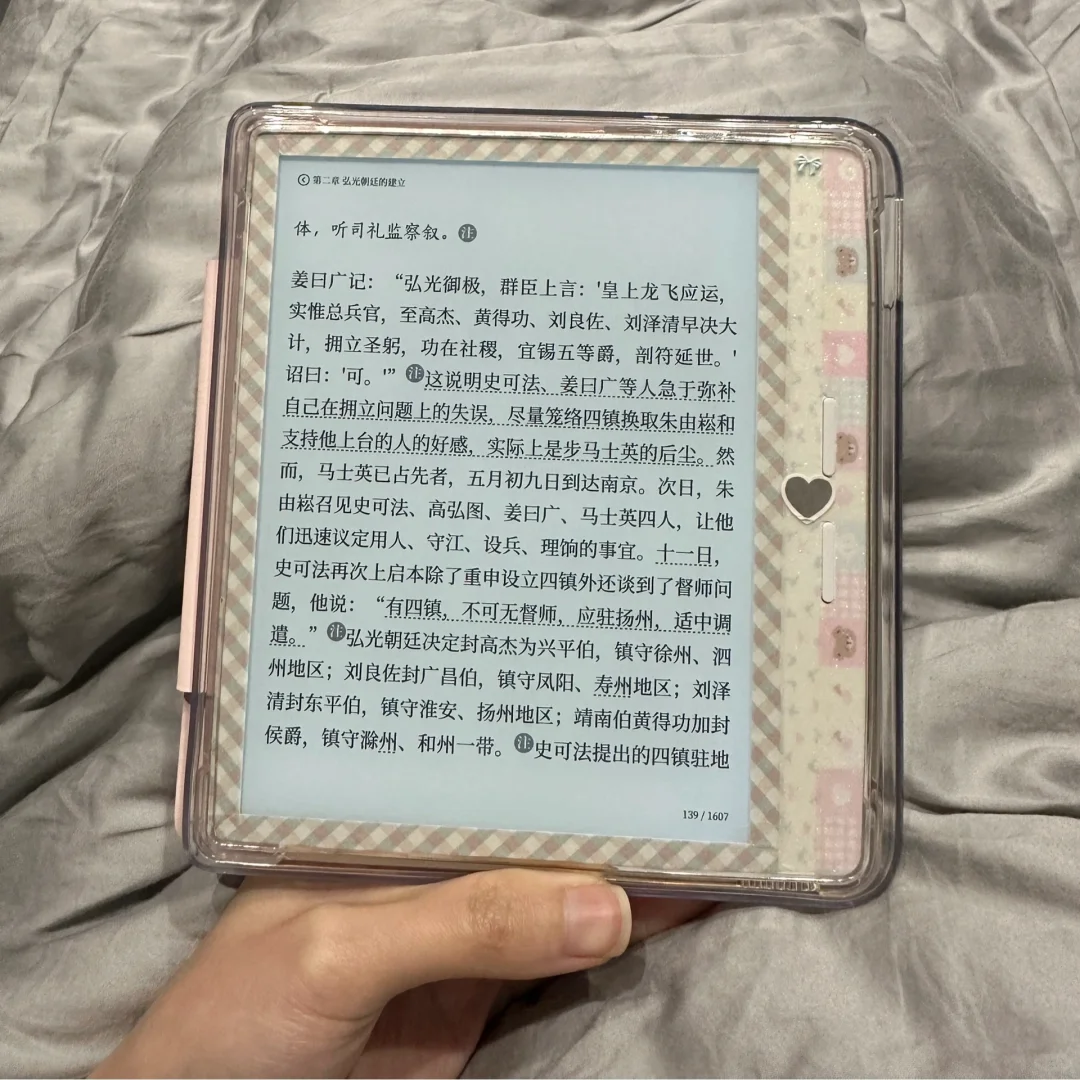 第二章 弘光朝廷的建立
体，听司礼监察叙。注
姜曰广记：“弘光御极，群臣上言：'皇上龙飞应运，
实惟总兵官，至高杰、黄得功、刘良佐、刘泽清早决大
计，拥立圣躬，功在社稷，宜锡五等爵，剖符延世。'
诏曰：'可。'”注这说明史可法、姜曰广等人急于弥补
自己在拥立问题上的失误，尽量笼络四镇换取朱由崧和
支持他上台的人的好感，实际上是步马士英的后尘。然
而，马士英已占先者，五月初九日到达南京。次日，朱
由崧召见史可法、高弘图、姜曰广、马士英四人，让他
们迅速议定用人、守江、设兵、理饷的事宜。十一日，
史可法再次上启本除了重申设立四镇外还谈到了督师问
题，他说：“有四镇，不可无督师，应驻扬州，适中调
遣。”注弘光朝廷决定封高杰为兴平伯，镇守徐州、泗
州地区；刘良佐封广昌伯，镇守凤阳、寿州地区；刘泽
清封东平伯，镇守淮安、扬州地区；靖南伯黄得功加封
侯爵，镇守滁州、和州一带。注史可法提出的四镇驻地
139 / 1607